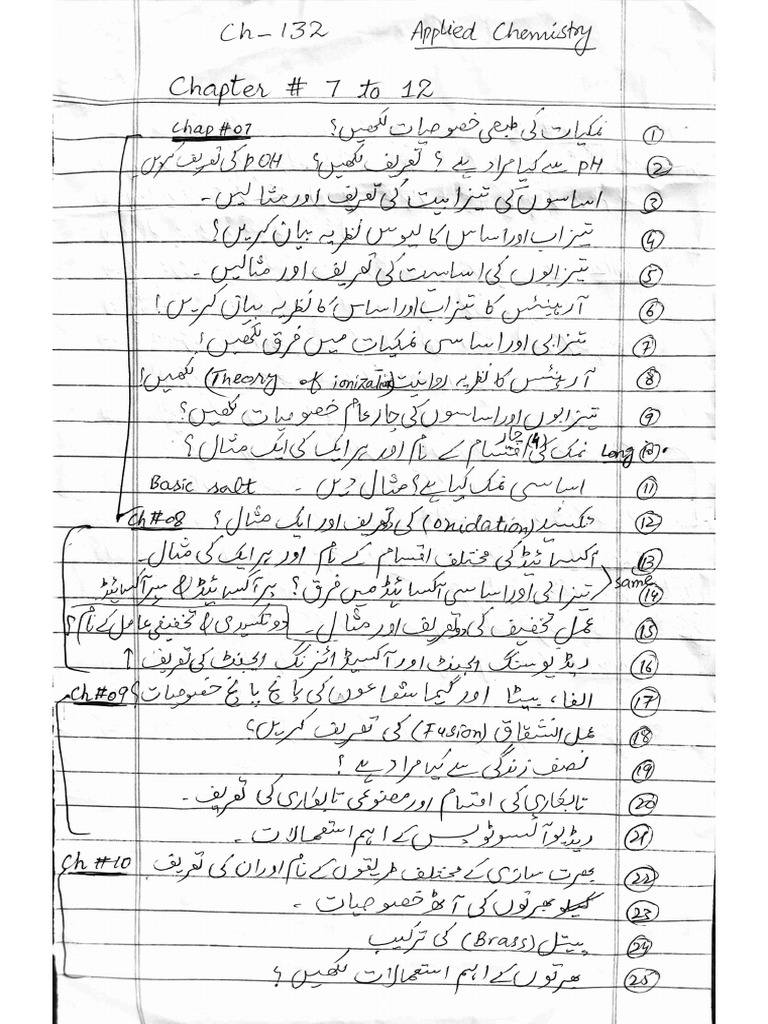 Ch-132 Applied Chemistry
Chapter # 7 to 12
Chap#07 نمکیات کی طبعی خصوصیات لکھیں؟ ①
pH سے کیا مراد ہے؟ تعریف لکھیں؟ pOH کی تعریف کریں ②
اساسوں کی تیزابیت کی تعریف اور مثالیں۔ ③
تیزاب اور اساس کا لیوس نظریہ بیان کریں؟ ④
تیزابوں کی اساسیت کی تعریف اور مثالیں۔ ⑤
آرہینئس کا تیزاب اور اساس کا نظریہ بیان کریں! ⑥
تیزابی اور اساسی نمکیات میں فرق لکھیں! ⑦
آرہینئس کا نظریہ روانیت (Theory of ionization) لکھیں! ⑧
تیزابوں اور اساسوں کی چار عام خصوصیات لکھیں؟ ⑨
نمک کی چار (4) اقسام کے نام اور ہر ایک کی ایک مثال؟ Long ⑩
اساسی نمک کیا ہے؟ مثال دیں۔ Basic salt ⑪
Ch#08 تکسید (Oxidation) کی تعریف اور ایک مثال؟ ⑫
آکسائیڈ کی مختلف اقسام کے نام اور ہر ایک کی مثال۔ ⑬
تیزابی اور اساسی آکسائیڈ میں فرق؟ پر آکسائیڈ & سپر آکسائیڈ same ⑭
عمل تخفیف کی دو تعریف اور مثال۔ دو تکسیدی & تخفیفی عامل کے نام؟ ⑮
ریڈیوسنگ ایجنٹ اور آکسیڈائزنگ ایجنٹ کی تعریف ↑ ⑯
Ch#09 الفا، بیٹا اور گیما شعاعوں کی پانچ پانچ خصوصیات؟ ⑰
عمل انشقاق (Fusion) کی تعریف کریں؟ ⑱
نصف زندگی سے کیا مراد ہے؟ ⑲
تابکاری کی اقسام اور مصنوعی تابکاری کی تعریف۔ ⑳
ریڈیو آئسوٹوپس کے اہم استعمالات۔ ㉑
Ch#10 بھرت سازی کے مختلف طریقوں کے نام اور ان کی تعریف ㉒
بھرتوں کی آٹھ خصوصیات۔ ㉓
پیتل (Brass) کی ترکیب ㉔
بھرتوں کے اہم استعمالات لکھیں؟ ㉕